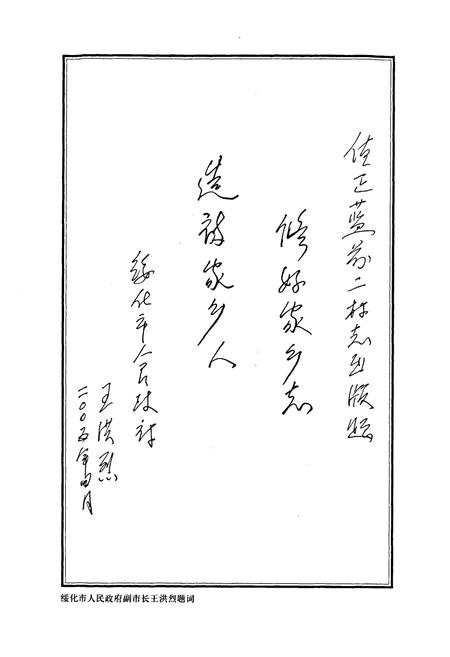 值正蓝前二村志出版题
修好家乡志
造福家乡人
绥化市人民政府
王洪烈
二〇〇五年四月
绥化市人民政府副市长王洪烈题词